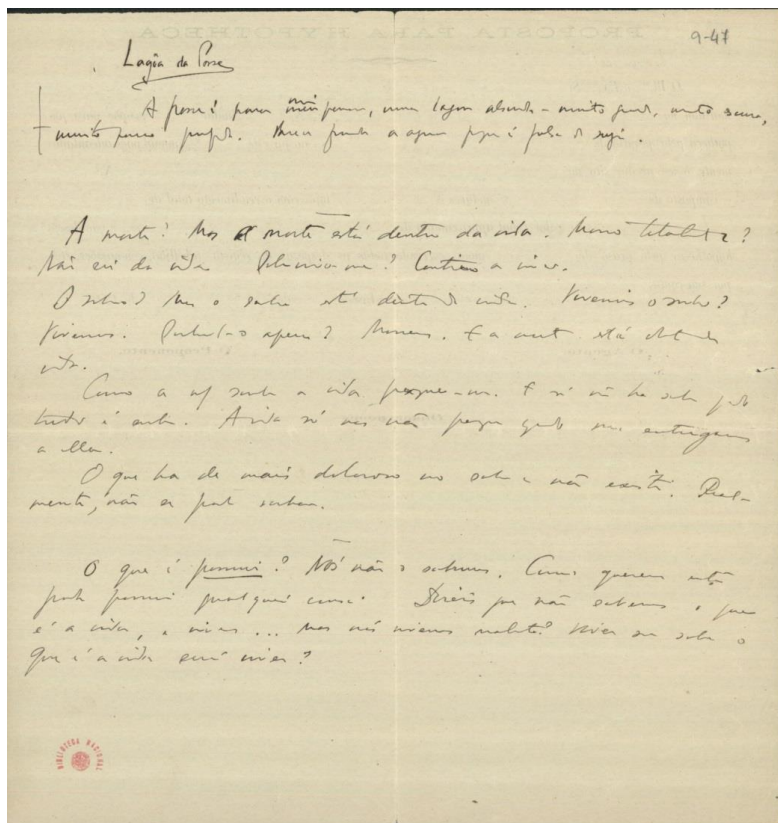 PROPOSTA PARA HYPOTHECA
9-47
Lagôa da Posse
A posse é para meu pensar, uma lagoa absurda – muito grande, muito escura,
muito pouco profunda. Parece funda a agua porque é falsa de suja.
A morte? Mas a morte está dentro da vida. Morro totalmente?
Não sei da vida. Sobrevivo-me? Continuo a viver.
O sonho? Mas o sonho está dentro da vida. Vivemos o sonho?
Vivemos. Sonhamol-o apenas? Morremos. E a morte está dentro da
vida.
Como a nossa sombra a vida persegue-nos. E só não ha sombra quando
tudo é sombra. A vida só nos não persegue quando nos entregamos
a ella.
O que ha de mais doloroso no sonho é não existir. Real-
mente, não se pode sonhar.
O que é possuir? Nós não o sabemos. Como querer então
poder possuir qualquer cousa? Direis que não sabemos o que
é a vida, e vivemos... Mas nós vivemos realmente? Viver sem saber o
que é a vida será viver?
BIBLIOTECA NACIONAL